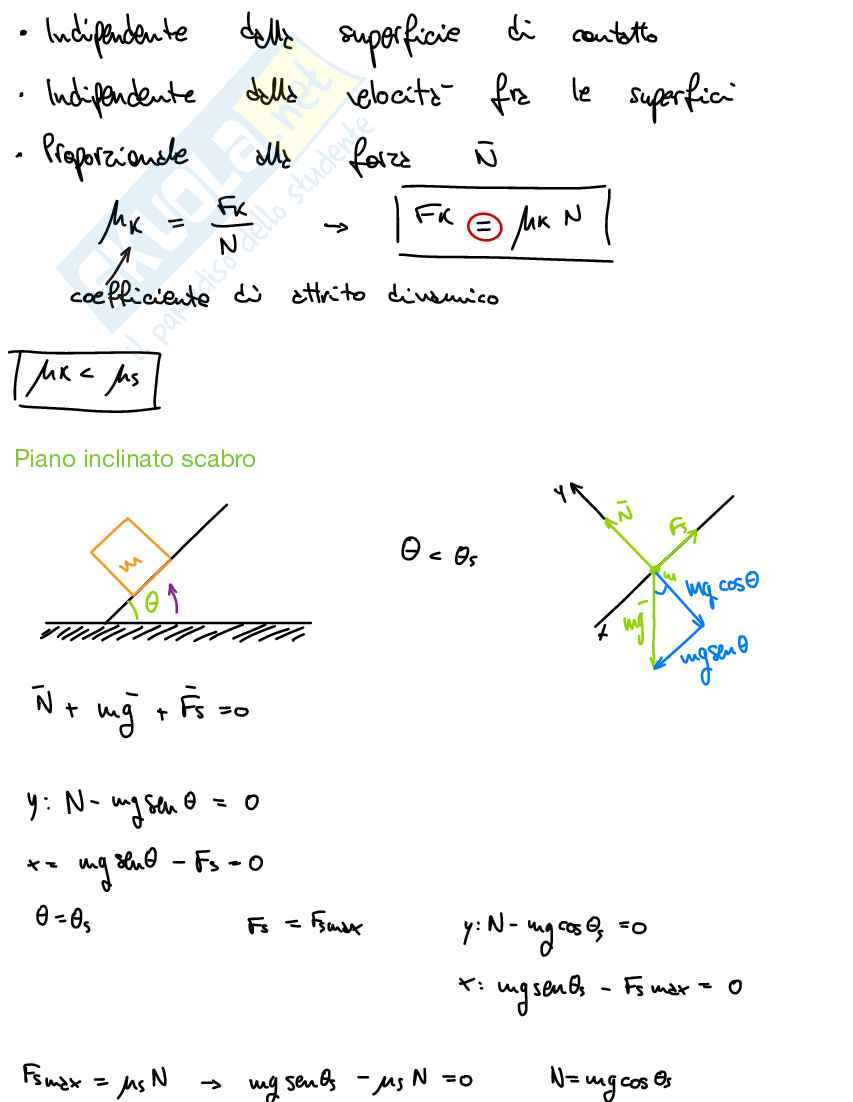 • Indipendente della superficie di contatto
• Indipendente dalla velocità fra le superfici
• Proporzionale alla forza N̄
μK = FK / N → FK = μK N
coefficiente di attrito dinamico
μK < μs
Piano inclinato scabro
m θ
θ < θs
y N̄ Fs m mḡ mg cosθ mg senθ x
N̄ + mḡ + F̄s = 0
y: N - mg sen θ = 0
x = mg senθ - Fs = 0
θ = θs Fs = Fsmax y: N - mg cos θs = 0
x: mg senθs - Fs max = 0
Fsmax = μs N → mg senθs - μs N = 0 N = mg cos θs
SKUOLA.net
il paradiso dello studente